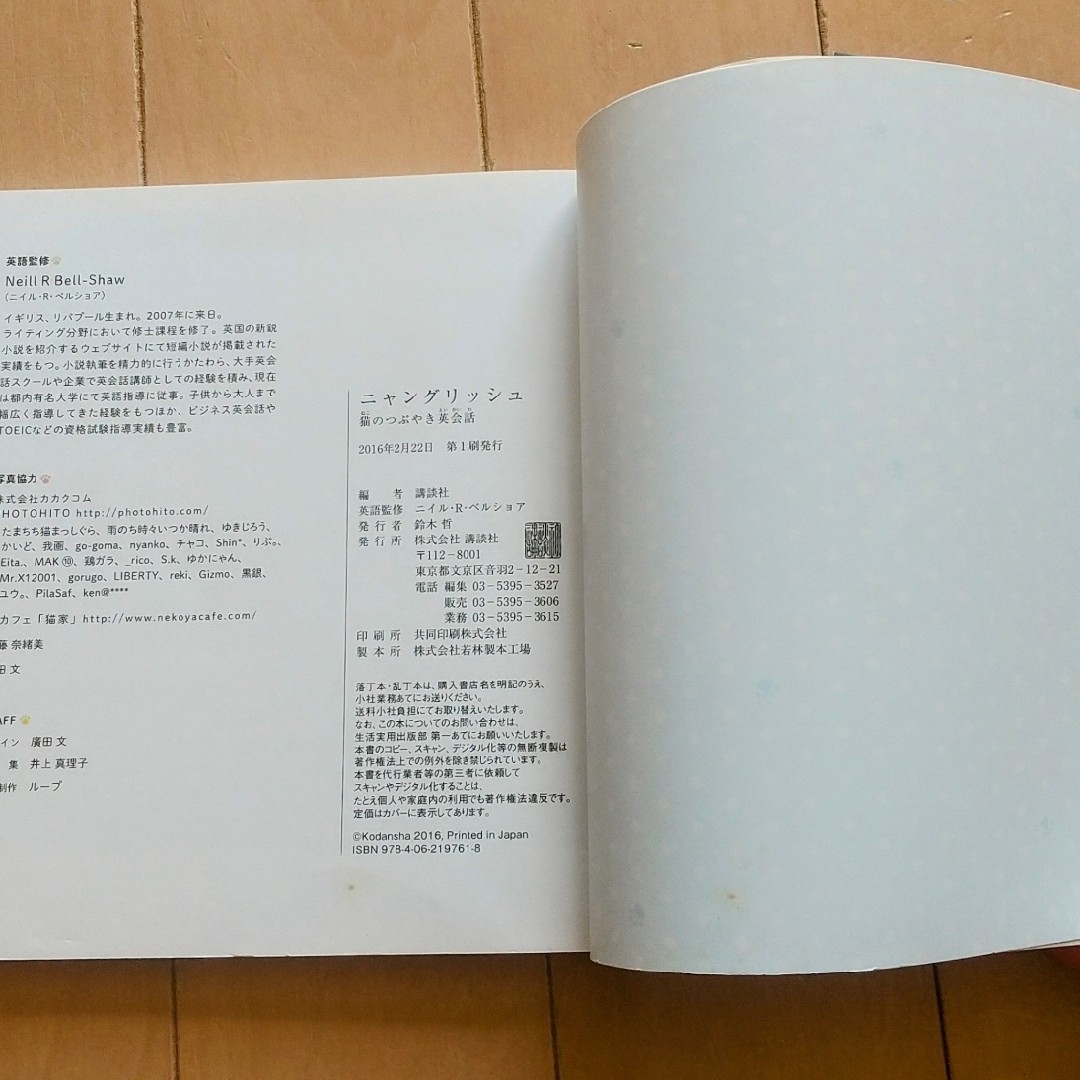 英語監修
Neill R Bell-Shaw
(ニイル・R・ベルショア)
イギリス、リバプール生まれ。2007年に来日。
ライティング分野において修士課程を修了。英国の新鋭
小説を紹介するウェブサイトにて短編小説が掲載された
実績をもつ。小説執筆を精力的に行うかたわら、大手英会
話スクールや企業で英会話講師としての経験を積み、現在
は都内有名大学にて英語指導に従事。子供から大人まで
幅広く指導してきた経験をもつほか、ビジネス英会話や
TOEICなどの資格試験指導実績も豊富。
写真協力
株式会社カカクコム
PHOTOHITO http://photohito.com/
たまちち猫まっしぐら、雨のち時々いつか晴れ、ゆきじろう、
かいど、我画、go-goma、nyanko、チャコ、Shin*、りぷ。、
Eita.、MAK⑩、鶏ガラ、_rico、S.k、ゆかにゃん、
Mr.X12001、gorugo、LIBERTY、reki、Gizmo、黒銀、
ユウ。、PilaSaf、ken@****
カフェ「猫家」http://www.nekoyacafe.com/
藤 奈緒美
田 文
AFF
イン 廣田 文
集 井上 真理子
制作 ループ
ニャングリッシュ
猫のつぶやき英会話
ねこ えいかいわ
2016年2月22日 第1刷発行
編者 講談社
英語監修 ニイル・R・ベルショア
発行者 鈴木 哲
発行所 株式会社 講談社
〒112-8001
東京都文京区音羽2-12-21
電話 編集 03-5395-3527
販売 03-5395-3606
業務 03-5395-3615
印刷所 共同印刷株式会社
製本所 株式会社若林製本工場
落丁本・乱丁本は、購入書店名を明記のうえ、
小社業務あてにお送りください。
送料小社負担にてお取り替えいたします。
なお、この本についてのお問い合わせは、
生活実用出版部 第一あてにお願いいたします。
本書のコピー、スキャン、デジタル化等の無断複製は
著作権法上での例外を除き禁じられています。
本書を代行業者等の第三者に依頼して
スキャンやデジタル化することは、
たとえ個人や家庭内の利用でも著作権法違反です。
定価はカバーに表示してあります。
©Kodansha 2016, Printed in Japan
ISBN 978-4-06-219761-8